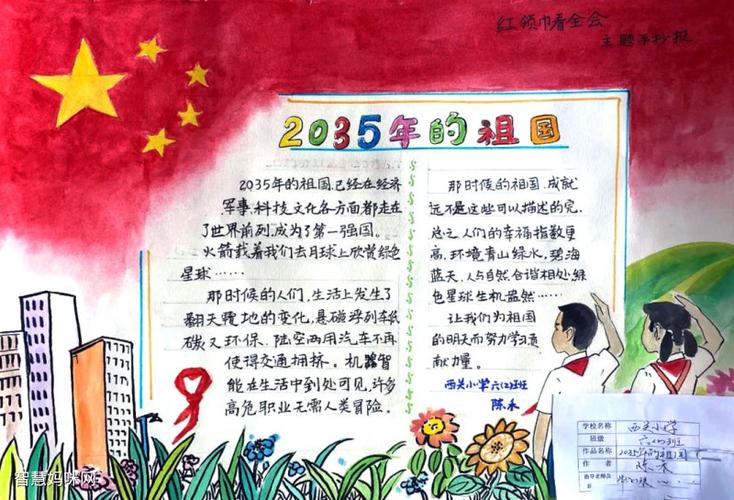 红领巾看全会
主题手抄报
2035年的祖国
2035年的祖国,已经在经济
军事,科技,文化各方面都走在
了世界前列,成为了第一强国。
火箭载着我们去月球上欣赏绿色
星球……
那时候的人们,生活上发生了
翻天覆地的变化,悬磁浮列车低
碳又环保,陆空两用汽车不再
使得交通拥挤。机器智
能在生活中到处可见,许多
高危职业无需人类冒险。
那时候的祖国,成就
远不是这些可以描述的完,
总之,人们的幸福指数更
高,环境青山绿水,碧海
蓝天,人与自然合谐相处,绿
色星球生机盎然……
让我们为祖国
的明天而努力学习,
献力量。
西关小学六(2)班
陈禾
学校名称 西关小学
班级 六(2)班
作品名称 2035年的祖国
作者 陈禾
指导老师
智慧妈咪网